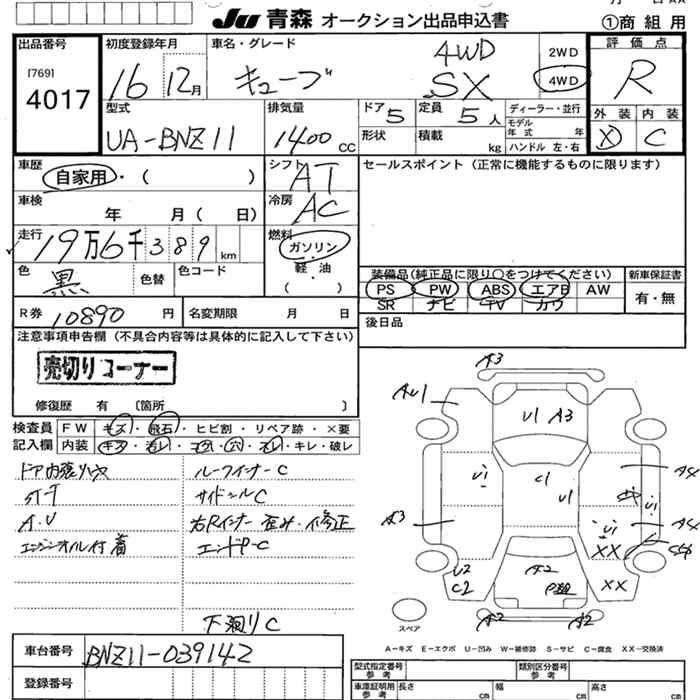 JU 青森 オークション出品申込書
①商組用
出品番号
[769]
4017
初度登録年月
16 12月
車名・グレード
キューブ
4WD
SX
2WD
4WD
評価点
R
外装 内装
X C
型式
UA-BNZ11
排気量
1400 CC
ドア 5
定員 5人
形状
積載 kg
ディーラー・並行
モデル
年式 年
ハンドル 左・右
車歴
自家用・( )
シフト
AT
セールスポイント (正常に機能するものに限ります)
車検
年 月( 日)
冷房
AC
走行
19万6千389km
燃料
ガソリン
軽・油
( )
色
黒
色替
色コード
装備品(純正品に限り○をつけてください)
PS PW ABS エアB AW
SR ナビ TV カワ
新車保証書
有・無
R券 10890円
名変期限 月 日
後日品
注意事項申告欄 (不具合内容等は具体的に記入して下さい)
売切りコーナー
修復歴 有 〔箇所 〕
検査員
記入欄
FW キズ・飛石・ヒビ割・リペア跡・×要
内装 キズ・汚レ・コゲ・穴・スレ・キレ・破レ
ドア内張りハズ
ST-T
A.U
エンジンオイル付着
ルーフインナーC
サイドシルC
右Rインナー歪み・修正
エンドP-C
下廻りC
A3
AU1
U1 A3
U1
C1
U1
A4
U1
A3
U1
A4
XX
U2
C2
A2
XX
A2
A2
スペア
A-キズ E-エクボ U-凹み W-補修跡 S-サビ C-腐食 XX-交換済
車台番号
BNZ11-039142
登録番号
型式指定番号
参考
類別区分番号
参考
車庫証明用
参考
長さ cm
幅 cm
高さ cm